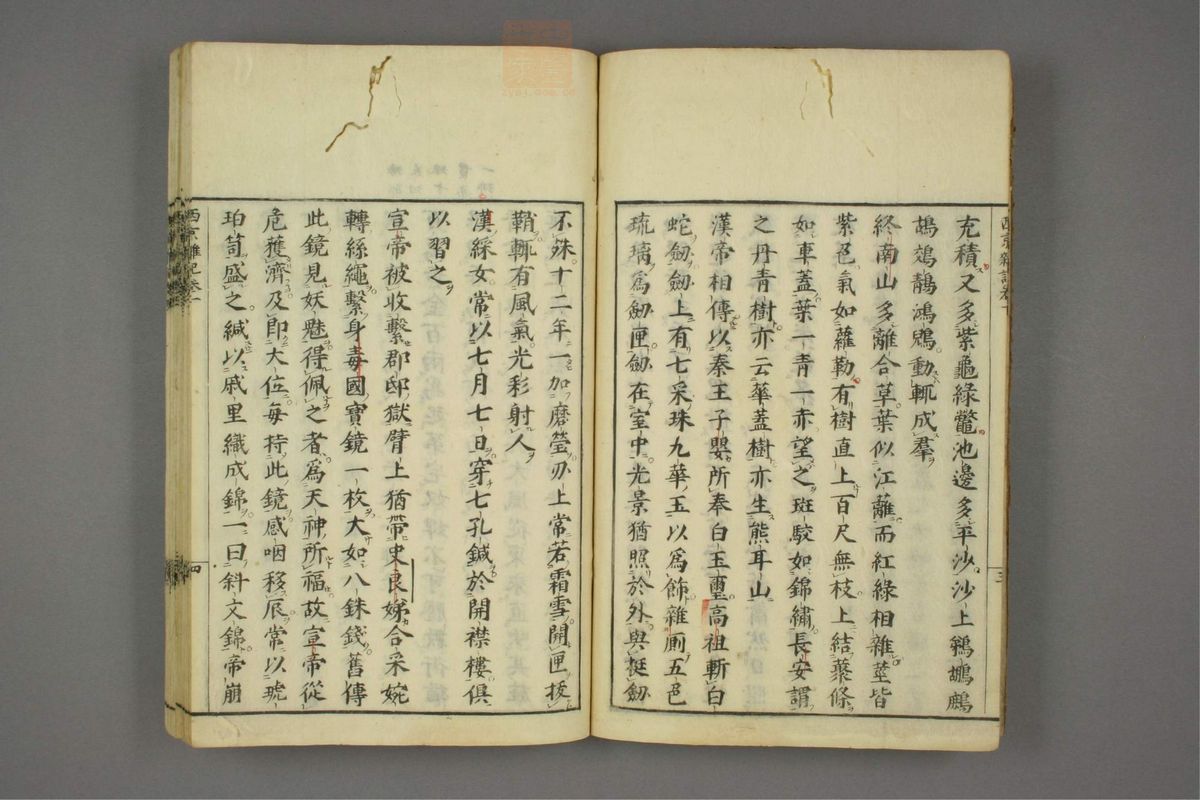 西京雜記卷一
三
充積又多紫龜綠鼈池邊多平沙沙上鵜鶘鷓
鴣鵁鶄鴻鶂動輒成羣
終南山多離合草葉似江蘺而紅綠相雜莖皆
紫色氣如蘿勒有樹直上百尺無枝上結藂條
如車蓋葉一青一赤望之斑駮如錦繡長安謂
之丹青樹亦云華蓋樹亦生熊耳山
漢帝相傳以秦王子嬰所奉白玉璽高祖斬白
蛇劒劒上有七采珠九華玉以爲飾雜厠五色
琉璃爲劒匣劒在室中光景猶照於外與挺劒
不殊十二年一加磨瑩刃上常若霜雪開匣拔
鞘輒有風氣光彩射人
漢綵女常以七月七日穿七孔鍼於開襟樓俱
以習之
宣帝被收繫郡邸獄臂上猶帶史良娣合采婉
轉絲繩繫身毒國寶鏡一枚大如八銖錢舊傳
此鏡見妖魅得佩之者爲天神所福故宣帝從
危獲濟及即大位每持此鏡感咽移辰常以琥
珀笥盛之緘以戚里織成錦一曰斜文錦帝崩
西京雜記卷一
四